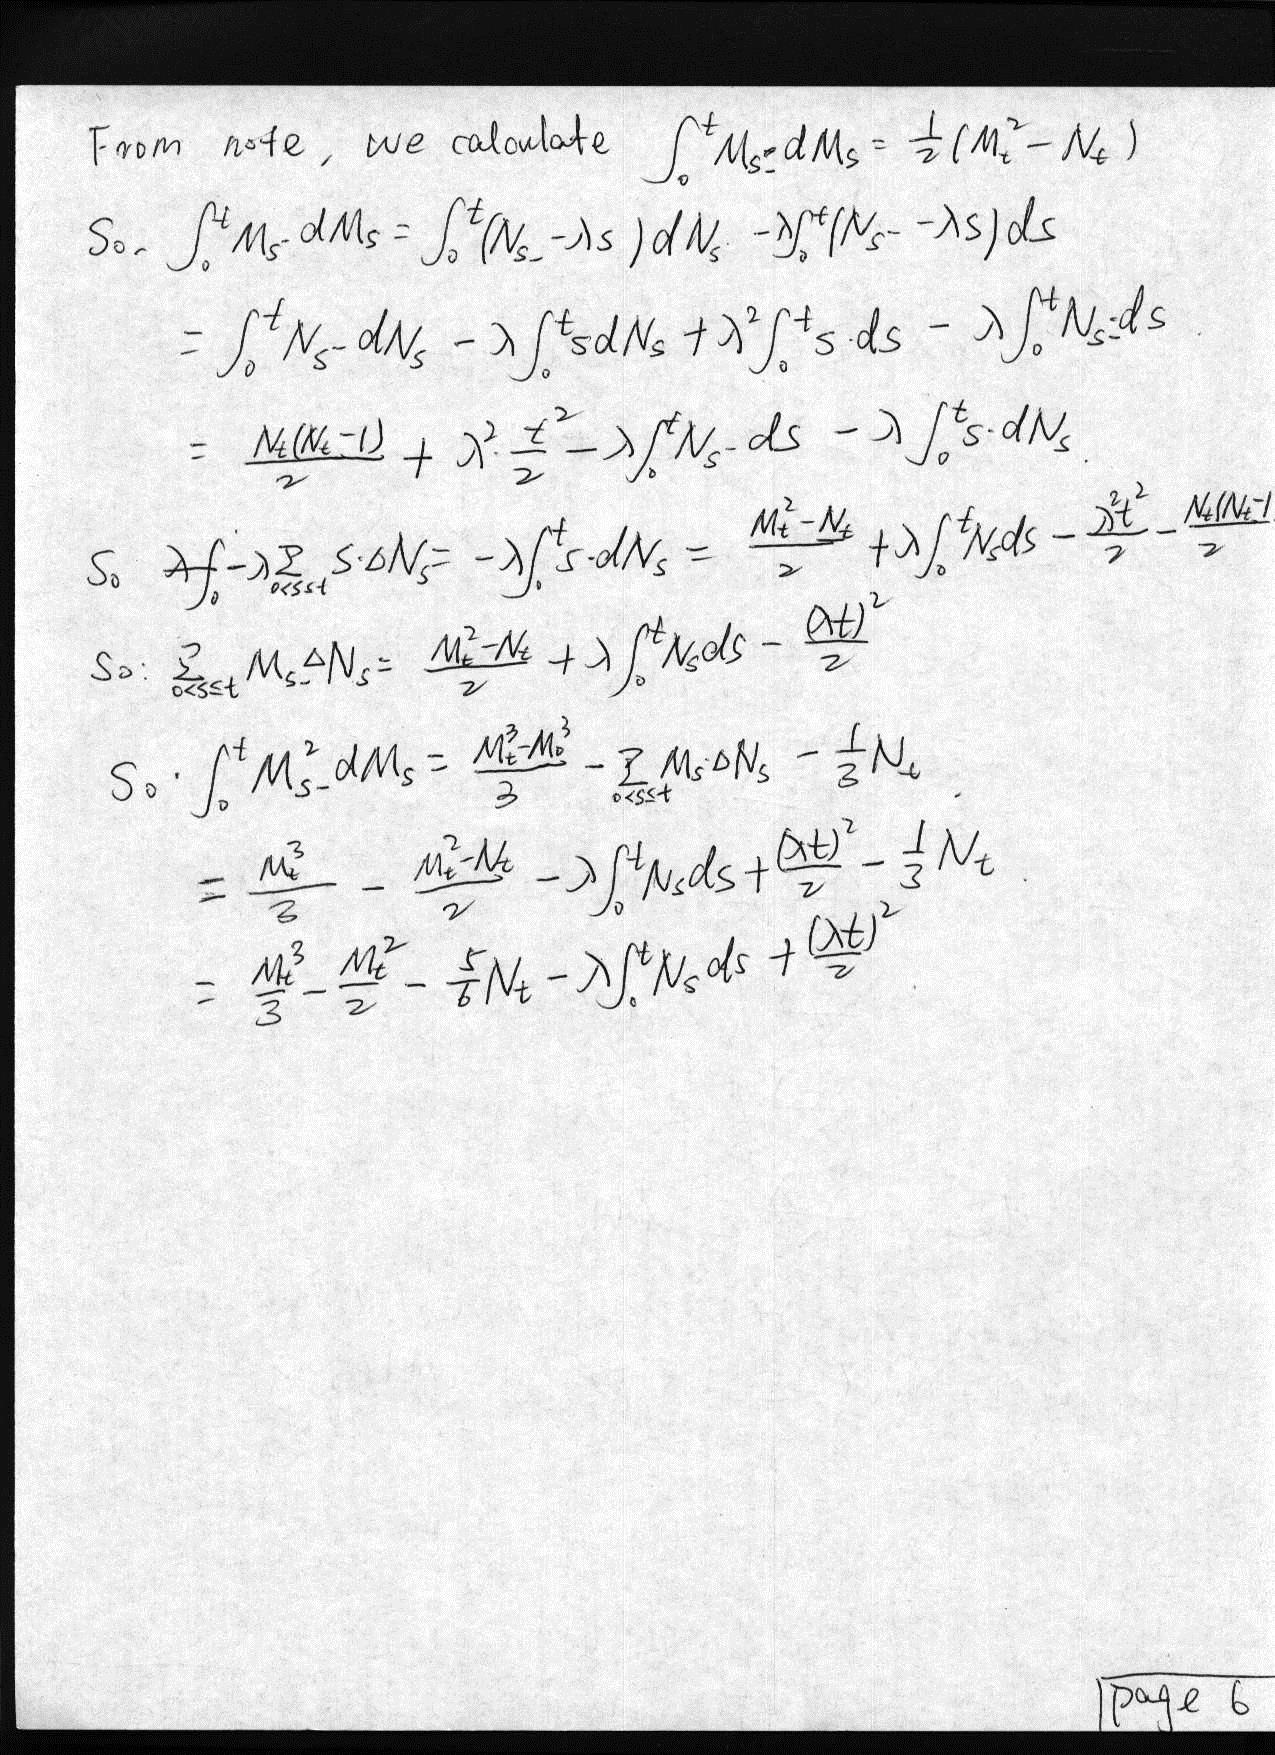 From note, we calculate ∫₀ᵗ M_{s-} dM_s = 1/2 (M_t² - N_t)
So. ∫₀ᵗ M_{s-} dM_s = ∫₀ᵗ (N_{s-} - λs) dN_s - λ∫₀ᵗ (N_{s-} - λs) ds
= ∫₀ᵗ N_{s-} dN_s - λ∫₀ᵗ s dN_s + λ² ∫₀ᵗ s·ds - λ∫₀ᵗ N_{s-} ds
= N_t(N_t-1)/2 + λ²· t²/2 - λ∫₀ᵗ N_{s-} ds - λ∫₀ᵗ s·dN_s
So -λ Σ_{0<s≤t} s·ΔN_s = -λ∫₀ᵗ s·dN_s = (M_t² - N_t)/2 + λ∫₀ᵗ N_s ds - λ²t²/2 - N_t(N_t-1
So: Σ_{0<s≤t} M_{s-} ΔN_s = (M_t² - N_t)/2 + λ∫₀ᵗ N_s ds - (λt)²/2
So · ∫₀ᵗ M_{s-}² dM_s = (M_t³ - M_0³)/3 - Σ_{0<s≤t} M_s·ΔN_s - 1/3 N_t
= M_t³/3 - (M_t² - N_t)/2 - λ∫₀ᵗ N_s ds + (λt)²/2 - 1/3 N_t
= M_t³/3 - M_t²/2 - 5/6 N_t - λ∫₀ᵗ N_s ds + (λt)²/2
page 6